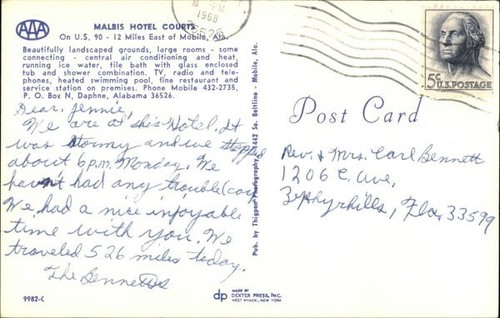 AAA
MALBIS HOTEL COURTS
On U.S. 90 - 12 Miles East of Mobile, Ala.
Beautifully landscaped grounds, large rooms - some
connecting - central air conditioning and heat,
running ice water, tile bath with glass enclosed
tub and shower combination. TV, radio and tele-
phones, heated swimming pool, fine restaurant and
service station on premises. Phone Mobile 432-2735,
P. O. Box N, Daphne, Alabama 36526.
Dear Jennie,
We are at this Hotel. It
was stormy and we stopped
about 6 p.m. Monday. We
haven't had any trouble (car)
We had a nice injoyable
time with you. We
traveled 526 miles today.
The Bennetts
9982-C
Pub. by Thigpen Photography, 1442 So. Beltline - Mobile, Ala.
PM
1968
5¢ U.S. POSTAGE
Post Card
Rev. & Mrs. Carl Bennett
1206 C. Ave,
Zephyrhills, Fla. 33599
dp
MADE BY
DEXTER PRESS, INC.
WEST NYACK, NEW YORK